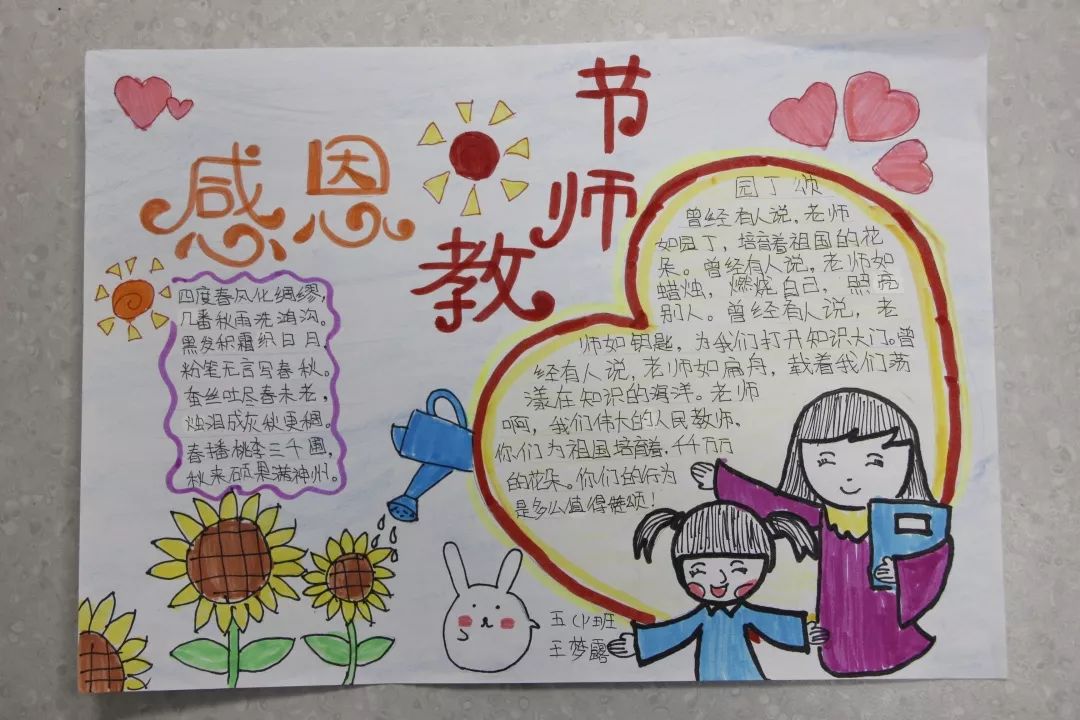 感恩
教师节
四度春风化绸缪，
几番秋雨洗鸿沟。
黑发积霜织日月，
粉笔无言写春秋。
蚕丝吐尽春未老，
烛泪成灰秋更稠。
春播桃李三千圃，
秋来硕果满神州。
园丁颂
曾经有人说，老师
如园丁，培育着祖国的花
朵。曾经有人说，老师如
蜡烛，燃烧自己，照亮
别人。曾经有人说，老
师如钥匙，为我们打开知识大门。曾
经有人说，老师如扁舟，载着我们荡
漾在知识的海洋。老师
啊，我们伟大的人民教师，
你们为祖国培育着，千千万万
的花朵。你们的行为
是多么值得赞颂！
五（1）班
王梦露